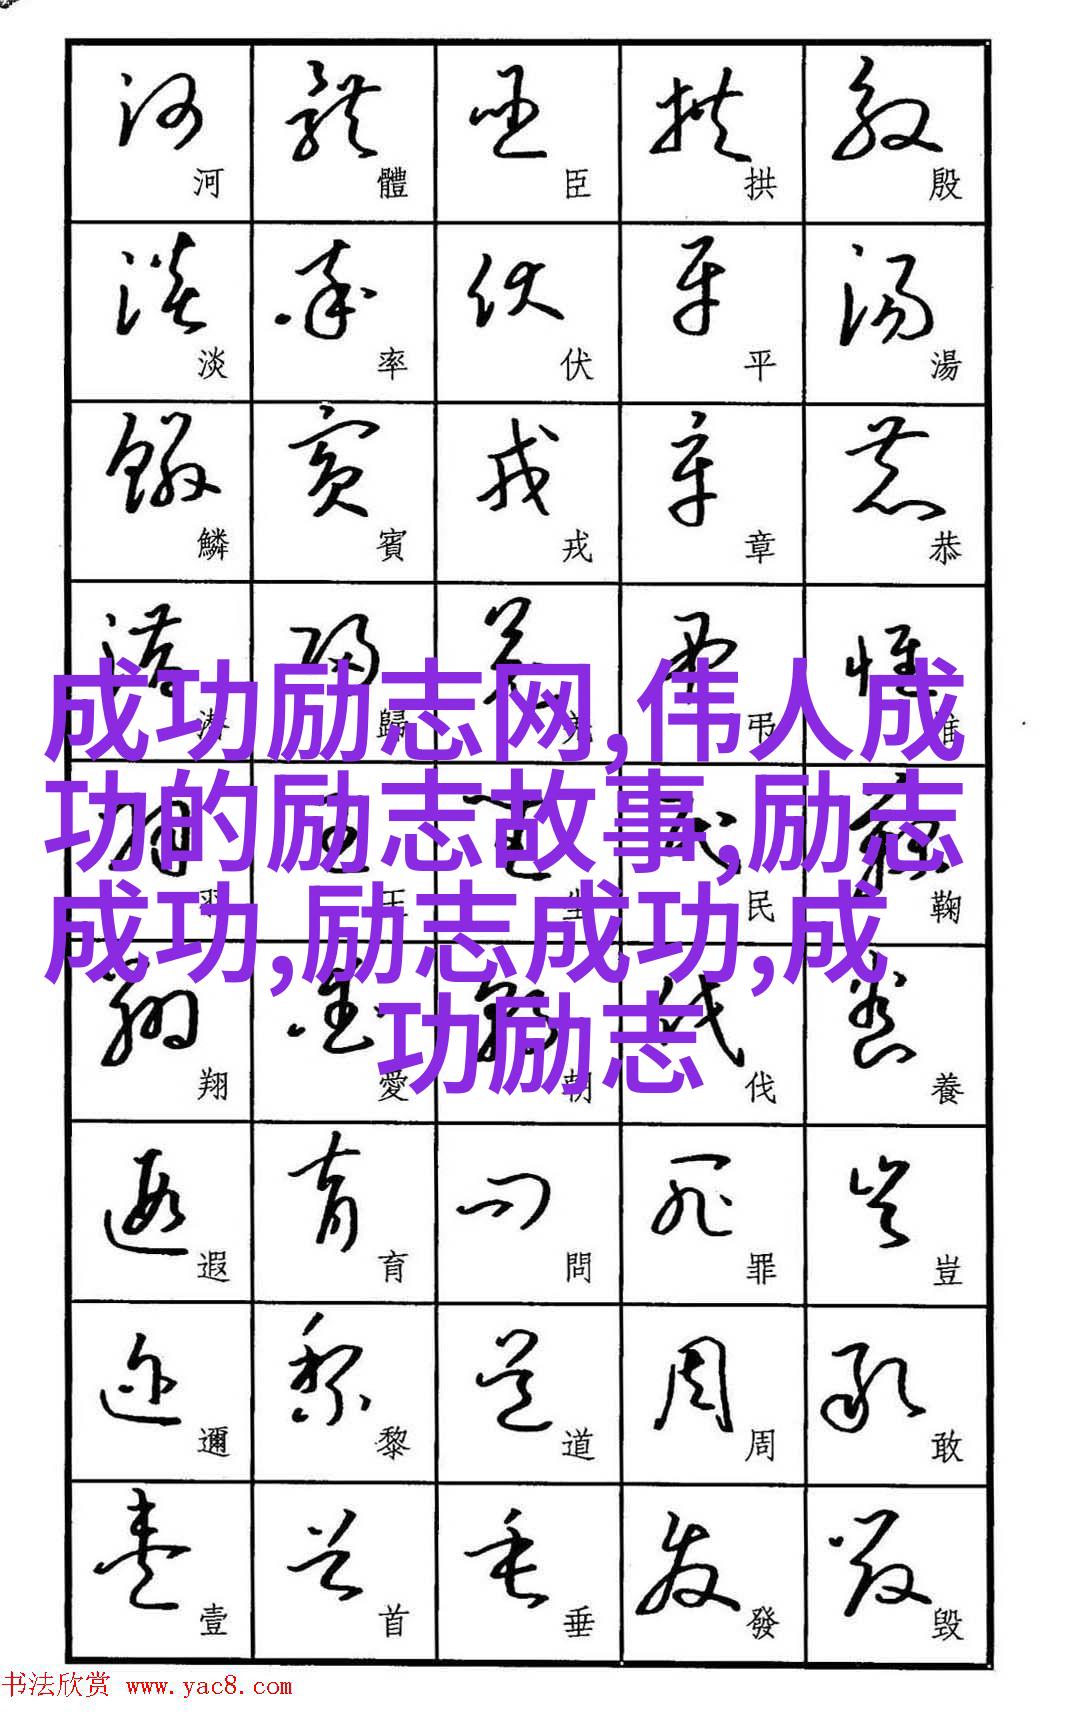 河淡鱗潛羽翔遐邇壹
體率賓歸王愛育黎首
臣伏戎羌坐朝問道垂
拱平章弔民伐罪周發
殷湯恭惟鞠養豈敢毀
成功励志网,伟人成
功的励志故事,励志
成功,励志成功,成
功励志
书法欣赏 www.yac8.com